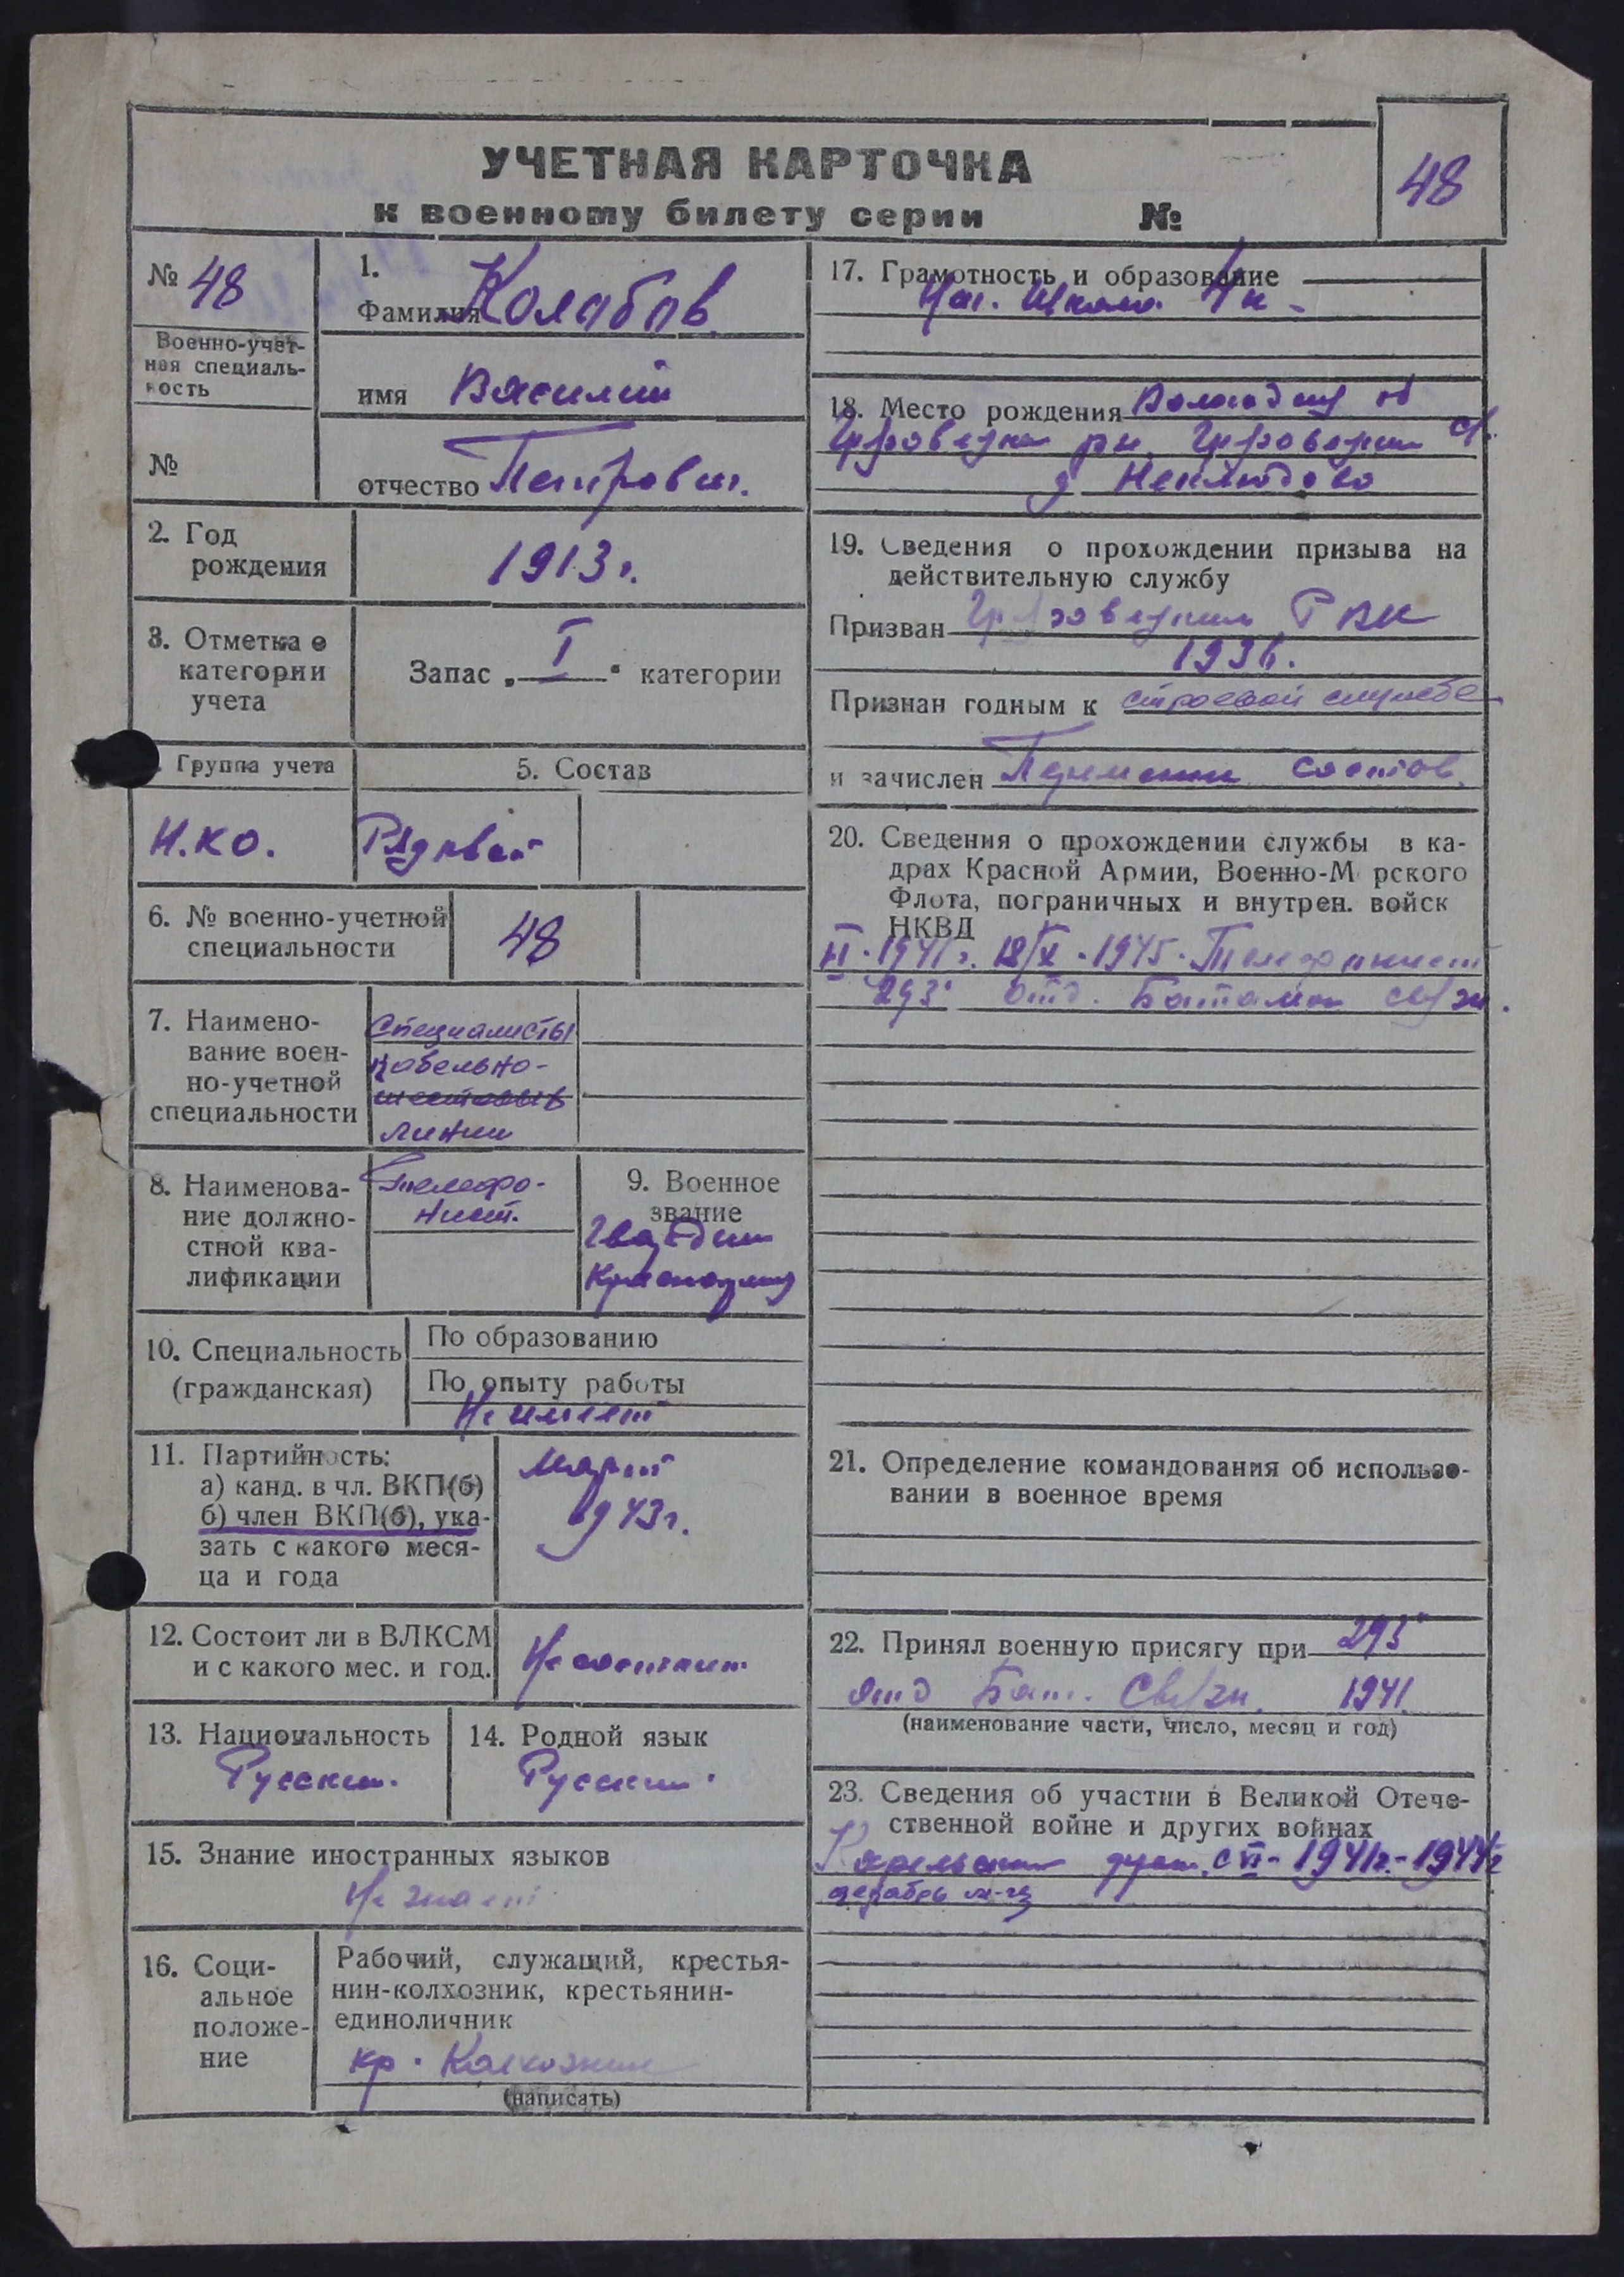 УЧЕТНАЯ КАРТОЧКА
к военному билету серии №
48
№ 48
Военно-учет-
ная специаль-
ность
№
1.
Фамилия Колабов
имя Василий
отчество Петрович.
2. Год
рождения
1913 г.
3. Отметка о
категории
учета
Запас „ I “ категории
Группа учета
Н.КО.
5. Состав
Рядовой
6. № военно-учетной
специальности
48
7. Наимено-
вание воен-
но-учетной
специальности
Специалисты
кабельно-
шестовых
линии
8. Наименова-
ние должно-
стной ква-
лификации
Телефо-
нист.
9. Военное
звание
Гвардии
10. Специальность
(гражданская)
По образованию
По опыту работы
Не имеет
11. Партийность:
а) канд. в чл. ВКП(б)
б) член ВКП(б), ука-
зать с какого меся-
ца и года
Март
1943 г.
12. Состоит ли в ВЛКСМ
и с какого мес. и год.
Не состоит
13. Национальность
Русский.
14. Родной язык
Русский.
15. Знание иностранных языков
Не знает
16. Соци-
альное
положе-
ние
Рабочий, служащий, крестья-
нин-колхозник, крестьянин-
единоличник
кр. Колхозник
(написать)
17. Грамотность и образование
Нач. Школа 4 к
18. Место рождения
д
19. Сведения о прохождении призыва на
действительную службу
Призван РВК
193
Признан годным к строевой службе
и зачислен состав
20. Сведения о прохождении службы в ка-
драх Красной Армии, Военно-М рского
Флота, пограничных и внутрен. войск
НКВД
1941 г. 18/X · 1945 · Телефонист
293 отд. Баталион связи.
21. Определение командования об использо-
вании в военное время
22. Принял военную присягу при 293
отд Бат. Связи. 1941
(наименование части, число, месяц и год)
23. Сведения об участии в Великой Отече-
ственной войне и других войнах
Карельский фронт. с VI - 1941 г. - 1944 г
декабрь м-ц